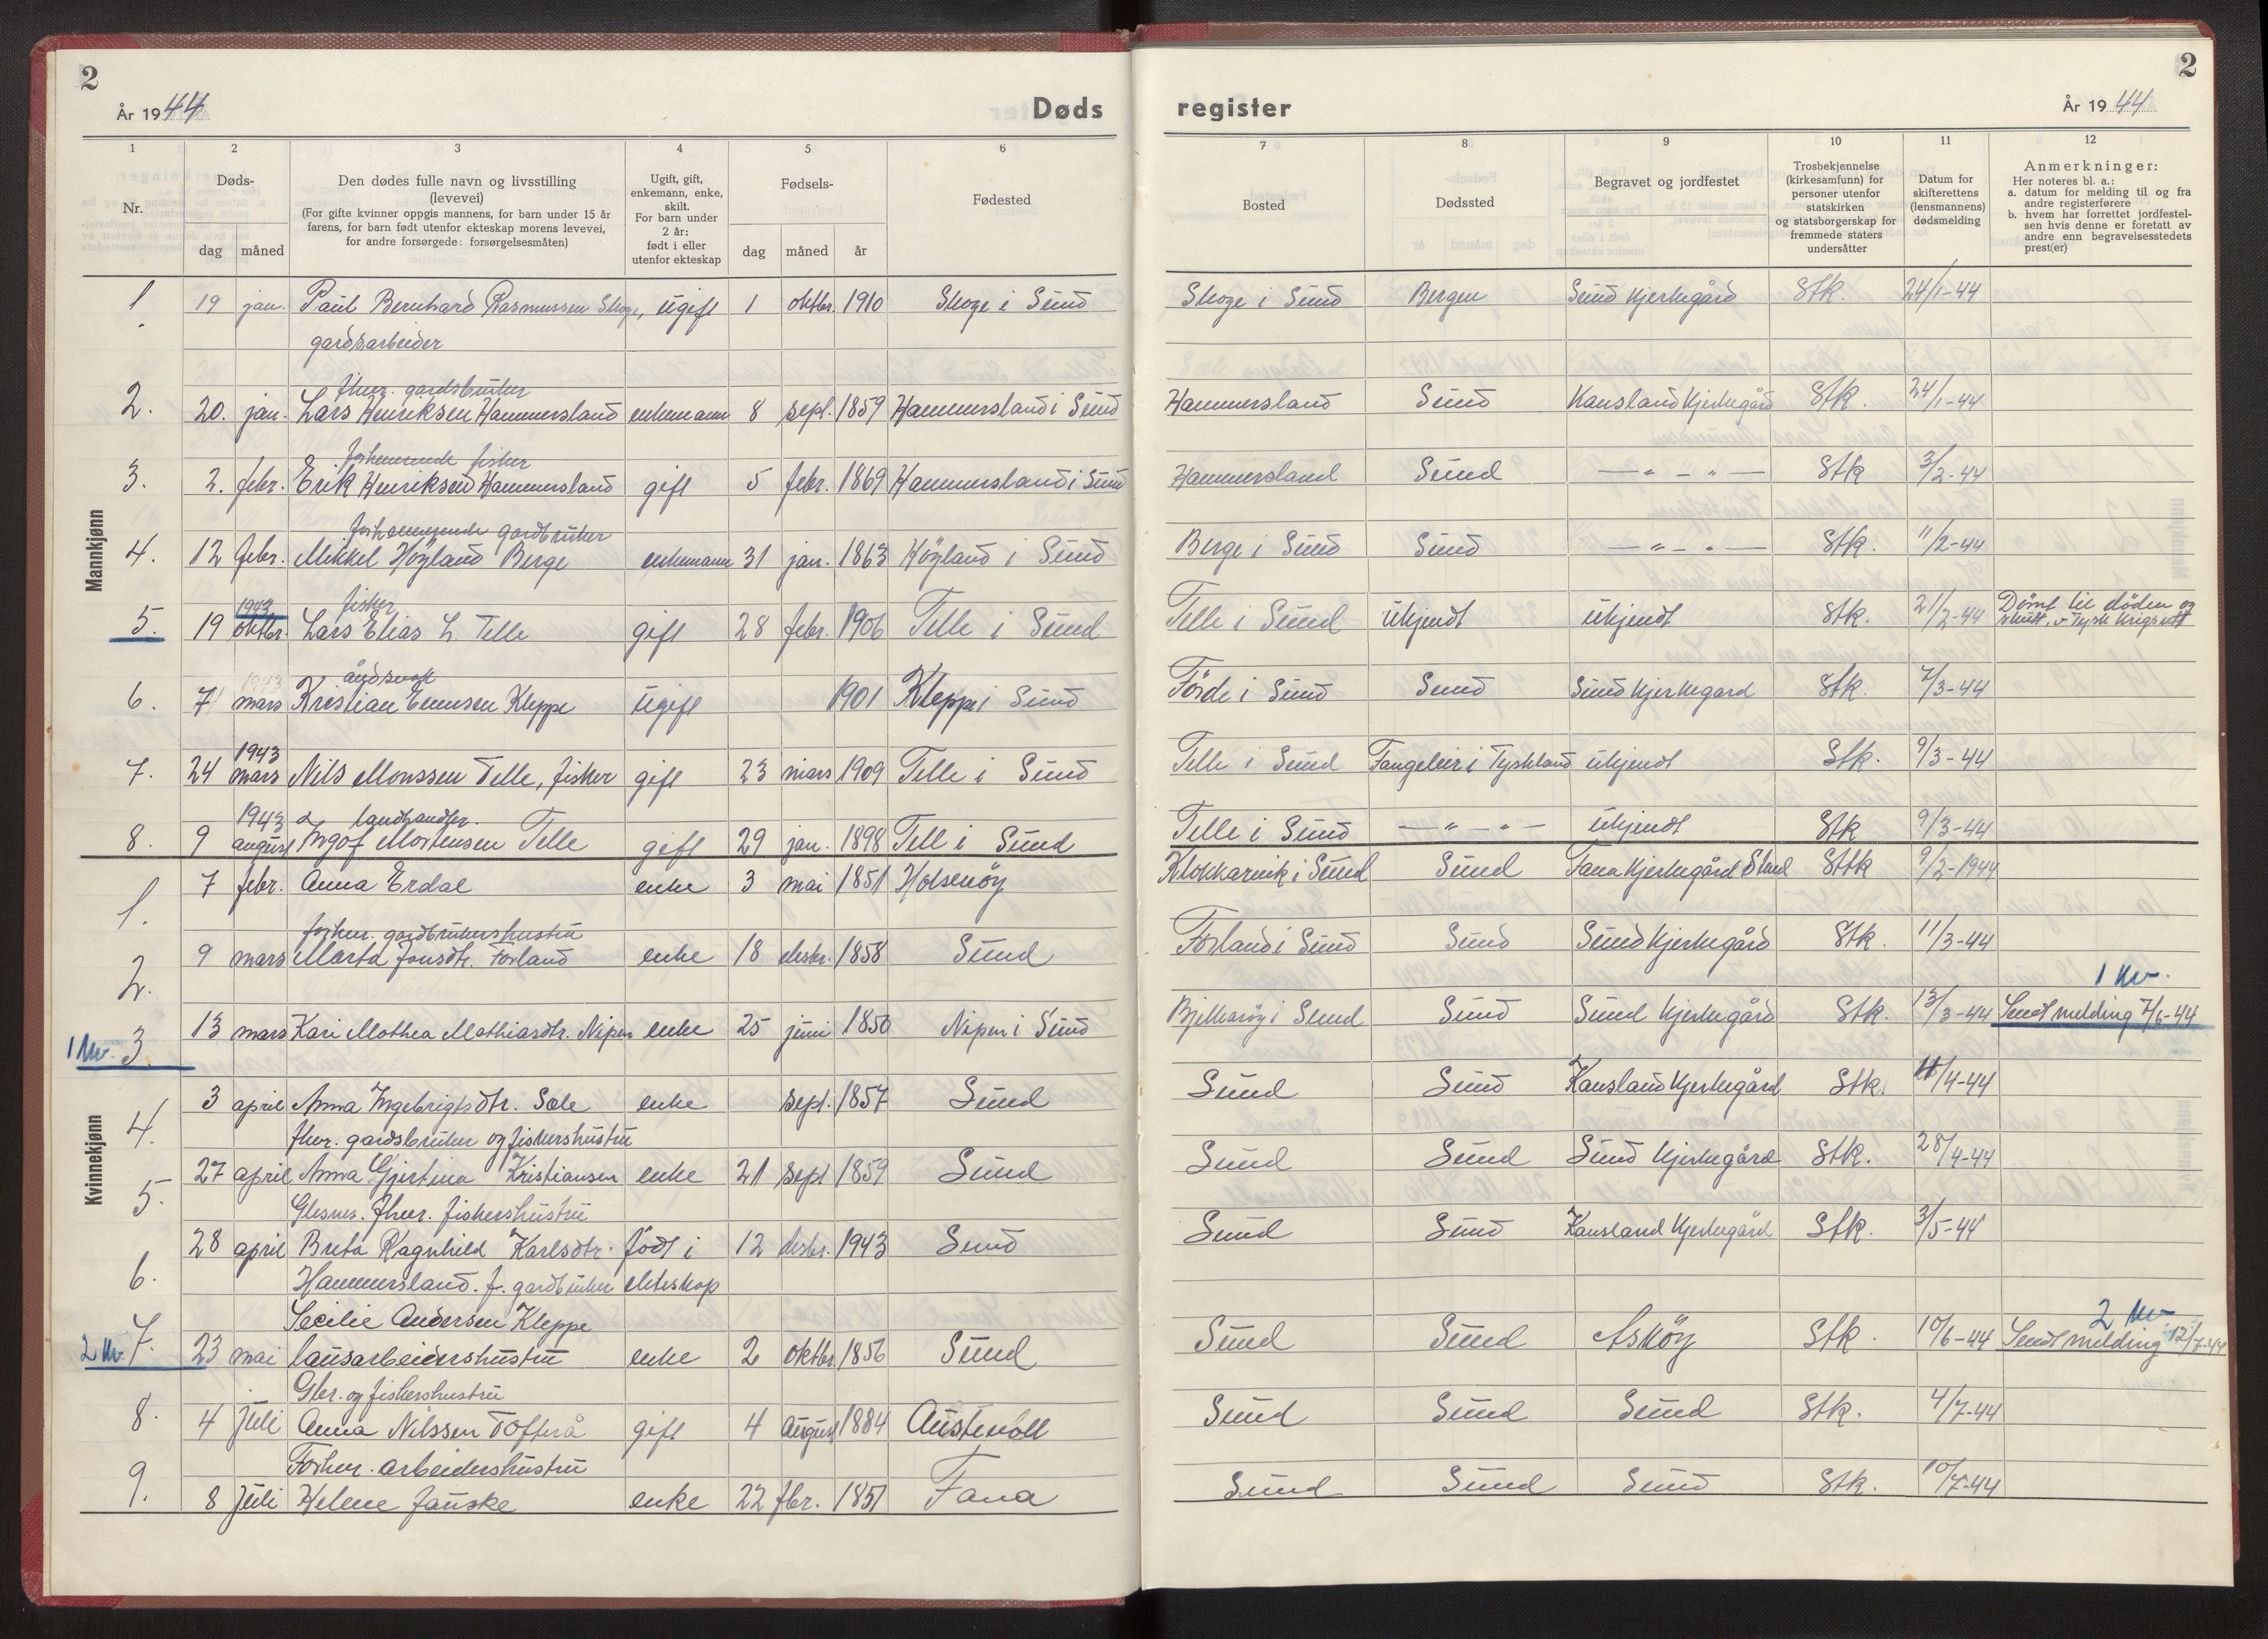 2
År 1944
Døds
1 2 3 4 5 6
Nr.
Døds-
dag måned
Den dødes fulle navn og livsstilling
(levevei)
(For gifte kvinner oppgis mannens, for barn under 15 år
farens, for barn født utenfor ekteskap morens levevei,
for andre forsørgede: forsørgelsesmåten)
Ugift, gift,
enkemann, enke,
skilt.
For barn under
2 år:
født i eller
utenfor ekteskap
Fødsels-
dag måned år
Fødested
Mannkjønn
1 19 jan. Paul Bernhard Rasmussen Skoge, ugift 1 oktbr. 1910 Skoge i Sund
gardsarbeider
fhv. gardsbruker
2. 20. jan. Lars Henriksen Hammersland enkemann 8 sept. 1859 Hammersland i Sund
forhenværende fisker
3. 2. febr. Erik Henriksen Hammersland gift 5 febr. 1869 Hammersland i Sund
forhenværende gardbruker
4. 12 febr. Mikkel Höyland Berge enkemann 31 jan. 1863 Höyland i Sund
1943 fisker
5. 19 oktbr. Lars Elias L. Telle gift 28 febr. 1906 Telle i Sund
1943 åndsvak
6. 7 mars Kristian Ennsen Kleppe ugift 1901 Kleppe i Sund
1943
7. 24 mars Nils Monssen Telle, fisker gift 23 mars 1909 Telle i Sund
1943 landhandler.
8. 9 august Ingof Mortensen Telle gift 29 jan. 1898 Tell i Sund
Kvinnekjønn
1. 7 febr. Anna Erdal enke 3 mai 1851 Holsenöy
forhen. gardbrukershustru
2. 9 mars Marta Jonsdtr. Forland enke 18 desbr. 1858 Sund
1 Kv. 3. 13 mars Kari Mathea Mathiasdtr. Nipen enke 25 juni 1850 Nipen i Sund
4. 3 april Anna Ingebrigtsdtr. Sæle enke sept. 1857 Sund
fhv. gardsbruker og fiskershustru
5. 27 april Anna Gjertina Kristiansen enke 21 sept 1859 Sund
Glesnes. Fhv. fiskershustru
6. 28 april Breta Ragnhild Karlsdtr. födt i 12 desbr. 1943 Sund
Hammersland. f. gardbruker ekteskap
Secilie Andersen Kleppe
2 Kv. 7. 23 mai lausarbeidershustru enke 2 oktbr. 1856 Sund
Gbr. og fiskershustru
8. 4 Juli Anna Nilssen Tofterå gift 4 August 1884 Austevoll
Forhen. arbeidershustru
9. 8 Juli Helene Fauske enke 22 fbr. 1851 Fana
2
register
År 1944
7 8 9 10 11 12
Bosted
Dødssted
Begravet og jordfestet
Trosbekjennelse
(kirkesamfunn) for
personer utenfor
statskirken
og statsborgerskap for
fremmede staters
undersåtter
Datum for
skifterettens
(lensmannens)
dødsmelding
Anmerkninger:
Her noteres bl. a.:
a. datum for melding til og fra
andre registerførere
b. hvem har forrettet jordfestel-
sen hvis denne er foretatt av
andre enn begravelsesstedets
prest(er)
Skoge i Sund Bergen Sund Kjerkegård Stk. 24/1-44
Hammersland Sund Kausland Kjerkegård Stk. 24/1-44
Hammersland Sund — " — " — Stk 3/2-44
Berge i Sund Sund — " — " — Stk. 11/2-44
Telle i Sund Ukjendt ukjendt Stk. 21/2-44 Dömt til döden og
skutt. v Tysk Krigsrett
Förde i Sund Sund Sund Kjerkegard Stk. 7/3-44
Telle i Sund Fangeleir i Tyskland ukjendt Stk. 9/3-44
Telle i Sund — " — " — ukjendt Stk 9/3-44
Klokkarvik i Sund Sund Fana Kjerkegård Sund Sttk 9/2-1944
Forland i Sund Sund Sund Kjerkegård Stk. 11/3-44
1 Kv.
Bjelkaröy i Sund Sund Sund Kjerkegård Stk. 13/3-44 Sendt melding 7/6-44
Sund Sund Kausland Kjerkegård Stk. 11/4-44
Sund Sund Sund Kjerkegård Stk. 28/4-44
Sund Sund Kausland Kjerkegård Stk. 3/5-44
2 Kv
Sund Sund Asköy Stk. 10/6-44 Sendt melding 12/7-44
Sund Sund Sund Stk. 4/7-44
Sund Sund Sund Stk. 10/7-44